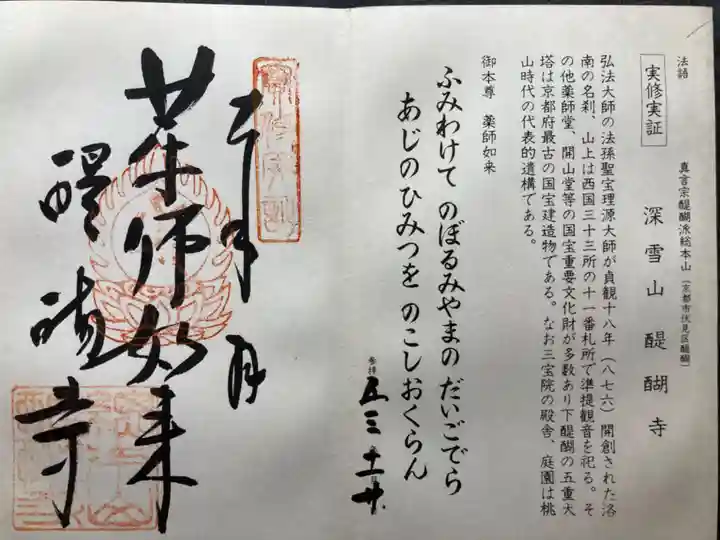 法語
実修実証
真言宗醍醐派総本山(京都市伏見区醍醐)
深雪山醍醐寺
弘法大師の法孫聖宝理源大師が貞観十八年(八七六)開創された洛
南の名刹、山上は西国三十三所の十一番札所で準提観音を祀る。そ
の他薬師堂、開山堂等の国宝重要文化財が多数あり下醍醐の五重大
塔は京都府最古の国宝建造物である。なお三宝院の殿舎、庭園は桃
山時代の代表的遺構である。
御本尊 薬師如来
ふみわけて のぼるみやまの だいごでら
あじのひみつを のこしおくらん
参拝
五 三 十一 廿
実修実証
薬師如来
醍醐寺